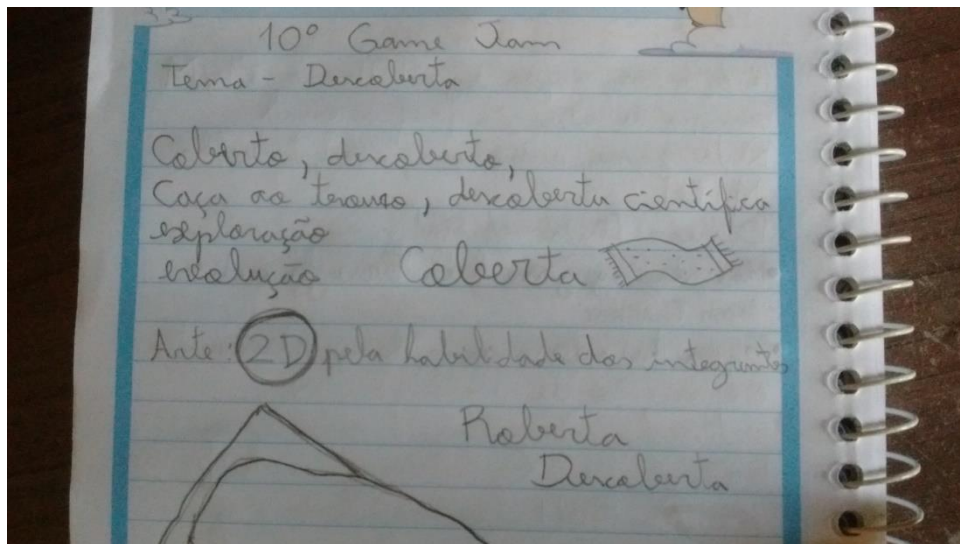 10º Game Jam
Tema - Descoberta
Coberto, descoberto,
Caça ao tesouro, descoberta científica
exploração
evolução Coberta
Arte: 2D pela habilidade dos integrantes
Roberta
Descoberta